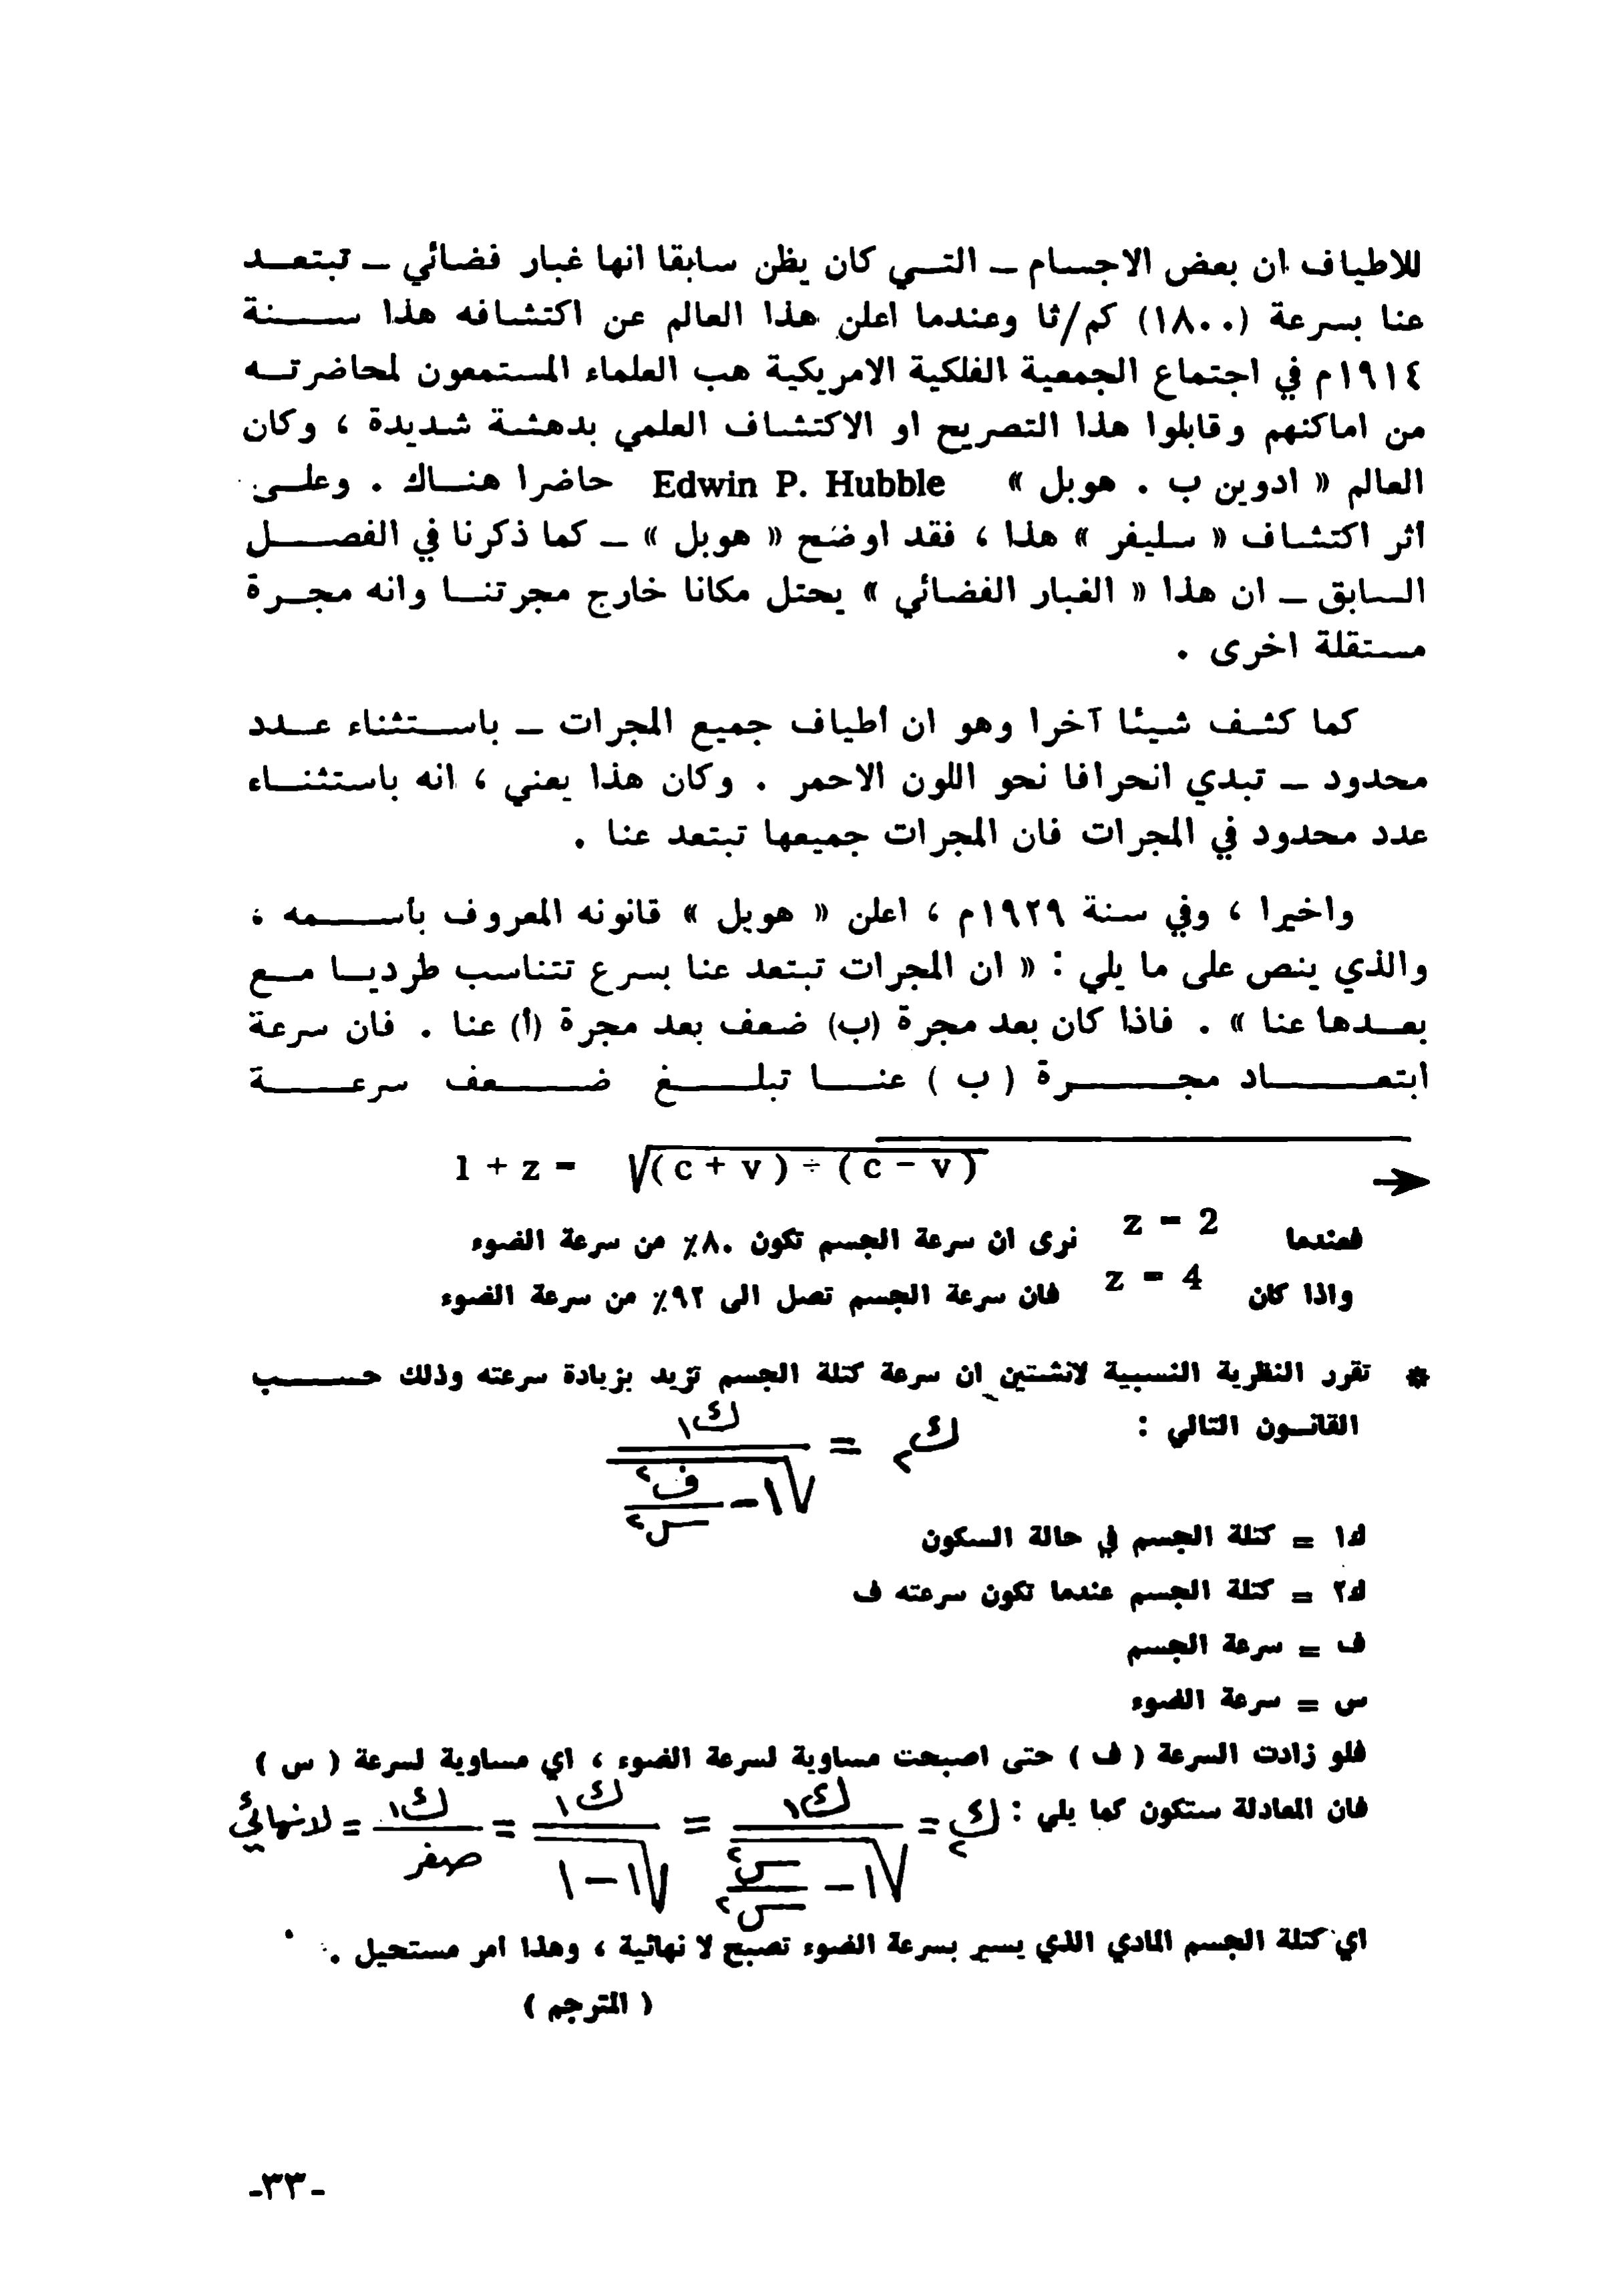 للاطياف ان بعض الاجسام ــ التي كان يظن سابقا انها غبار فضائي ــ تبتعد
عنا بسرعة (١٨٠٠) كم/ثا وعندما اعلن هذا العالم عن اكتشافه هذا سنة
١٩١٤م في اجتماع الجمعية الفلكية الامريكية هب العلماء المستمعون لمحاضرته
من اماكنهم وقابلوا هذا التصريح او الاكتشاف العلمي بدهشة شديدة ، وكان
العالم « ادوين ب . هوبل » Edwin P. Hubble حاضرا هناك . وعلى
أثر اكتشاف « سليفر » هذا ، فقد اوضح « هوبل » ــ كما ذكرنا في الفصل
السابق ــ ان هذا « الغبار الفضائي » يحتل مكانا خارج مجرتنا وانه مجرة
مستقلة اخرى .
كما كشف شيئا آخرا وهو ان أطياف جميع المجرات ــ باستثناء عدد
محدود ــ تبدي انحرافا نحو اللون الاحمر . وكان هذا يعني ، انه باستثناء
عدد محدود في المجرات فان المجرات جميعها تبتعد عنا .
واخيرا ، وفي سنة ١٩٢٩م ، اعلن « هوبل » قانونه المعروف بأسمه ،
والذي ينص على ما يلي : « ان المجرات تبتعد عنا بسرع تتناسب طرديا مع
بعدها عنا » . فاذا كان بعد مجرة (ب) ضعف بعد مجرة (أ) عنا . فان سرعة
ابتعاد مجرة ( ب ) عنا تبلغ ضعف سرعة
1 + z = √( c + v ) ÷ ( c − v )
→
فعندما z = 2 نرى ان سرعة الجسم تكون ٨٠٪ من سرعة الضوء
واذا كان z = 4 فان سرعة الجسم تصل الى ٩٢٪ من سرعة الضوء
* تقرر النظرية النسبية لانشتين ان سرعة كتلة الجسم تزيد بزيادة سرعته وذلك حسب
القانون التالي : ك٢ = ك١ / √(١ − ف٢ / س٢)
ك١ = كتلة الجسم في حالة السكون
ك٢ = كتلة الجسم عندما تكون سرعته ف
ف = سرعة الجسم
س = سرعة الضوء
فلو زادت السرعة ( ف ) حتى اصبحت مساوية لسرعة الضوء ، اي مساوية لسرعة ( س )
فان المعادلة ستكون كما يلي : ك٢ = ك١ / √(١ − س٢ / س٢) = ك١ / √(١ − ١) = ك١ / صفر = لانهائي
اي كتلة الجسم المادي الذي يسير بسرعة الضوء تصبح لا نهائية ، وهذا امر مستحيل .
( المترجم )
-٣٣-